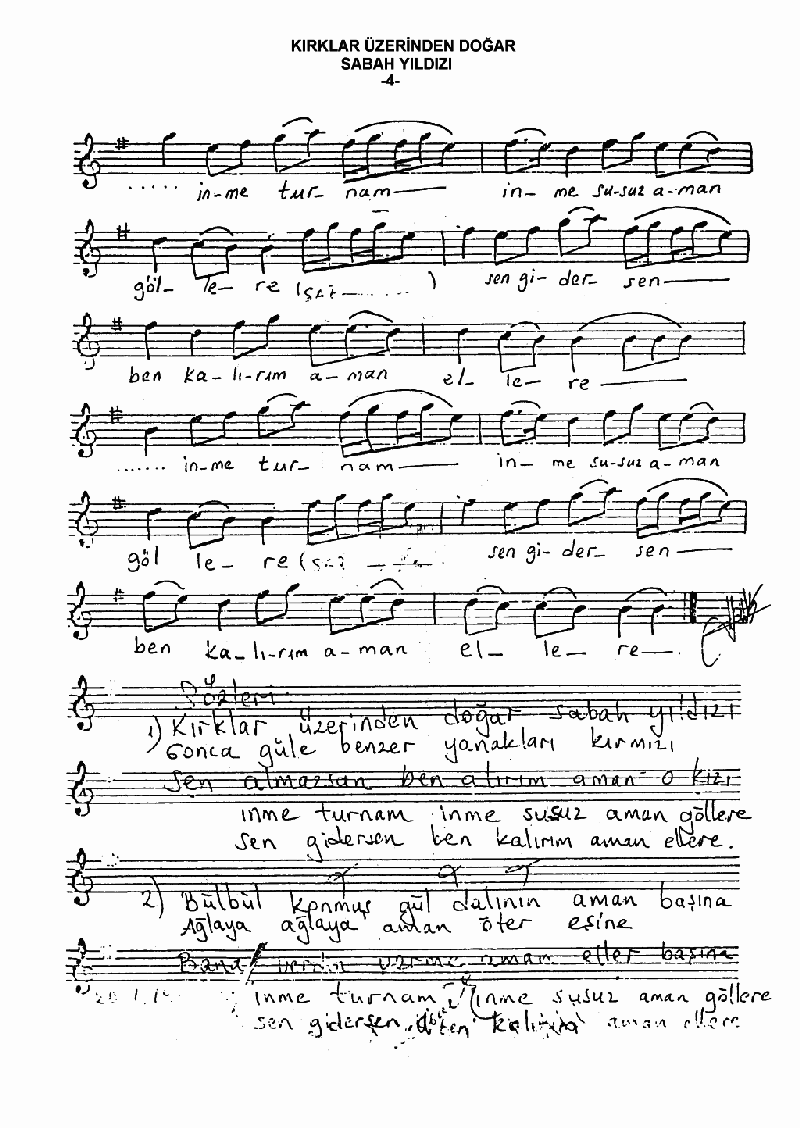 KIRKLAR ÜZERİNDEN DOĞAR
SABAH YILDIZI
-4-
..... in-me tur- nam in- me su-suz a-man
göl- le- re (saz ......) sen gi- der- sen
ben ka-lı-rım a-man el- le- re
...... in-me tur- nam in- me su-suz a-man
göl le- re (saz sen gi- der- sen
ben ka-lı-rım a-man el- le- re
Sözleri
1) Kırklar üzerinden doğar sabah yıldızı
Gonca güle benzer yanakları kırmızı
Sen almazsan ben alırım aman o kızı
inme turnam inme susuz aman göllere
Sen gidersen ben kalırım aman ellere.
2) Bülbül konmuş gül dalının aman başına
Ağlaya ağlaya aman öter eşine
Bana aman eller başına
inme turnam inme susuz aman göllere
sen gidersen ben kalırım aman ellere